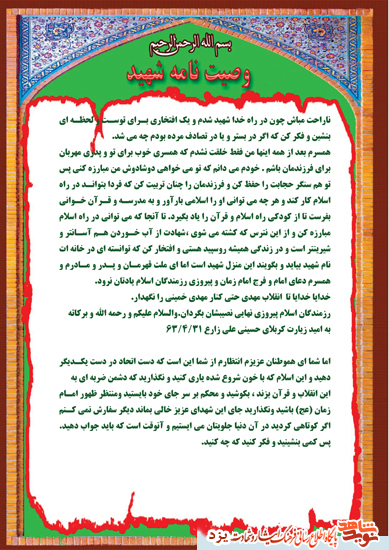 بسم الله الرحمن الرحیم
وصیت نامه شهید
ناراحت مباش چون در راه خدا شهید شدم و یک افتخاری برای توست و لحظه ای
بنشین و فکر کن که اگر در بستر و یا در تصادف مرده بودم چه می شد.
همسرم بعد از همه اینها من فقط خلقت نشدم که همسری خوب برای تو و پدری مهربان
برای فرزندمان باشم . خودم می دانم که تو می خواهی دوشادوش من مبارزه کنی پس
تو هم سنگر حجابت را حفظ کن و فرزندمان را چنان تربیت کن که فردا بتوانند در راه
اسلام کار کنند و هر چه می توانی او را اسلامی بارآور و به مدرسه و قرآن خوانی
بفرست تا از کودکی راه اسلام و قرآن را یاد بگیرد. تا آنجا که می توانی در راه اسلام
مبارزه کن و از این نترس که کشته می شوی ،شهادت از آب خوردن هم آسانتر و
شیرینتر است و در زندگی همیشه روسپید هستی و افتخار کن که توانسته ای در خانه ات
نام شهید بیاید و بگویند این منزل شهید است اما ای ملت قهرمان و پدر و مادرم و
همسرم دعای امام و فرج امام زمان و پیروزی رزمندگان اسلام یادتان نرود.
خدایا خدایا تا انقلاب مهدی حتی کنار مهدی خمینی را نگهدار.
رزمندگان اسلام پیروزی نهایی نصیبشان بگردان.والسلام علیکم و رحمه الله و برکاته
به امید زیارت کربلای حسینی علی زارع ۶۳/۴/۳۱
اما شما ای هموطنان عزیزم انتظارم از شما این است که دست اتحاد در دست یکدیگر
دهید و این اسلام که با خون شروع شده یاری کنید و نگذارید که دشمن ضربه ای به
این انقلاب و قرآن بزند ، بکوشید و محکم بر سر جای خود بایستید ومنتظر ظهور امام
زمان (عج) باشید ونگذارید جای این شهدای عزیز خالی بماند دیگر سفارش نمی کنم
اگر کوتاهی کردید در آن دنیا جلویتان می ایستیم و آنوقت است که باید جواب دهید.
پس کمی بنشینید و فکر کنید که چه کنید.
نوید شاهد
پایگاه اطلاع رسانی فرهنگ ایثار و شهادت یزد